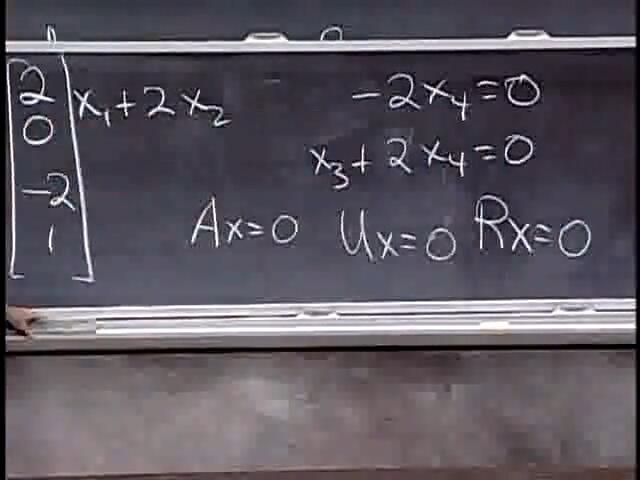 [2 0 -2 1]
x₁ + 2x₂ -2x₄ = 0
x₃ + 2x₄ = 0
Ax = 0 Ux = 0 Rx = 0